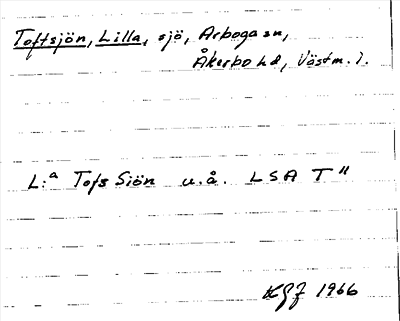 Toftsjön, Lilla, sjö, Arboga sn,
Åkerbo hd, Västm. l.
L:a Tofs Siön u.å. LSA T"
KGF 1966